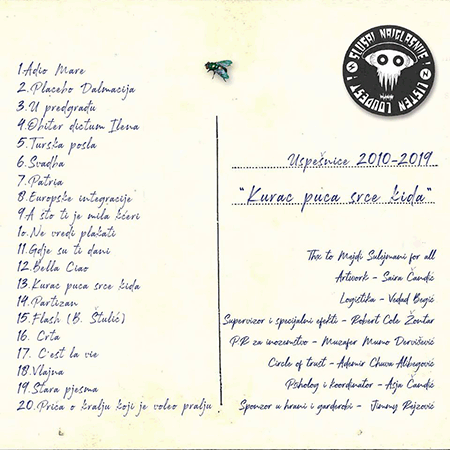 1.Adio Mare
2.Placebo Dalmacija
3.U predgrađu
4.Obiter dictum Ilena
5.Turska posla
6.Svadba
7.Patria
8.Europske integracije
9.A što ti je mila kćeri
10.Ne vredi plakati
11.Gdje su ti dani
12.Bella Ciao
13.Kurac puca srce kida
14.Partizan
15.Flash (B. Štulić)
16. Crta
17. C'est la vie
18.Vlajna
19.Stara pjesma
20.Priča o kralju koji je voleo pralju
SLUŠAJ NAJGLASNIJE!
LISTEN LOUDEST!
Uspešnice 2010-2019
"Kurac puca srce kida"
Thx to Mejdi Sulejmani for all
Artwork - Saira Čandić
Logistika - Vedad Begić
Supervizor i specijalni efekti - Robert Cole Žontar
P.R za inozemstvo - Muzafer Mumo Dervišević
Circle of trust - Ademir Chuva Alibegović
Psiholog i koordinator - Asja Čandić
Sponzor u hrani i garderobi - Jimmy Rejzović